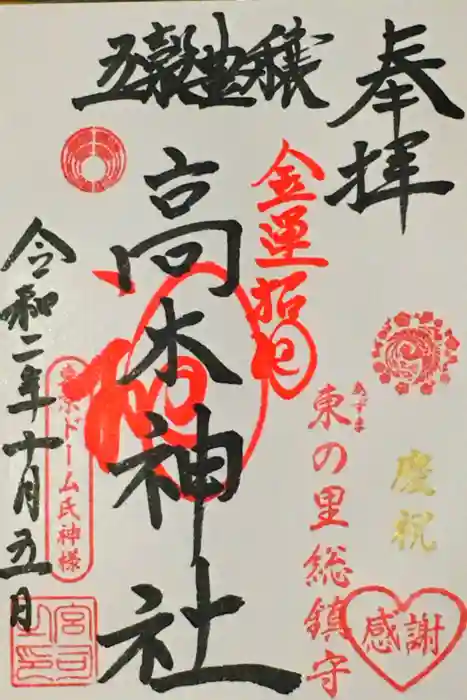 奉拝
五穀豊穣
金運招
高木神社
東の里総鎮守
あずま
慶祝
感謝
令和二年十月五日
東京ドーム氏神様
宮司之印